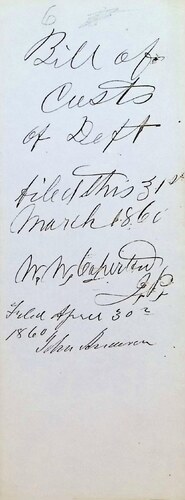 6
Bill of
Costs
of Deft
filed this 31st
March 1860
W. W. Caperton
J. P.
Filed April 30th
1860
John Anderson